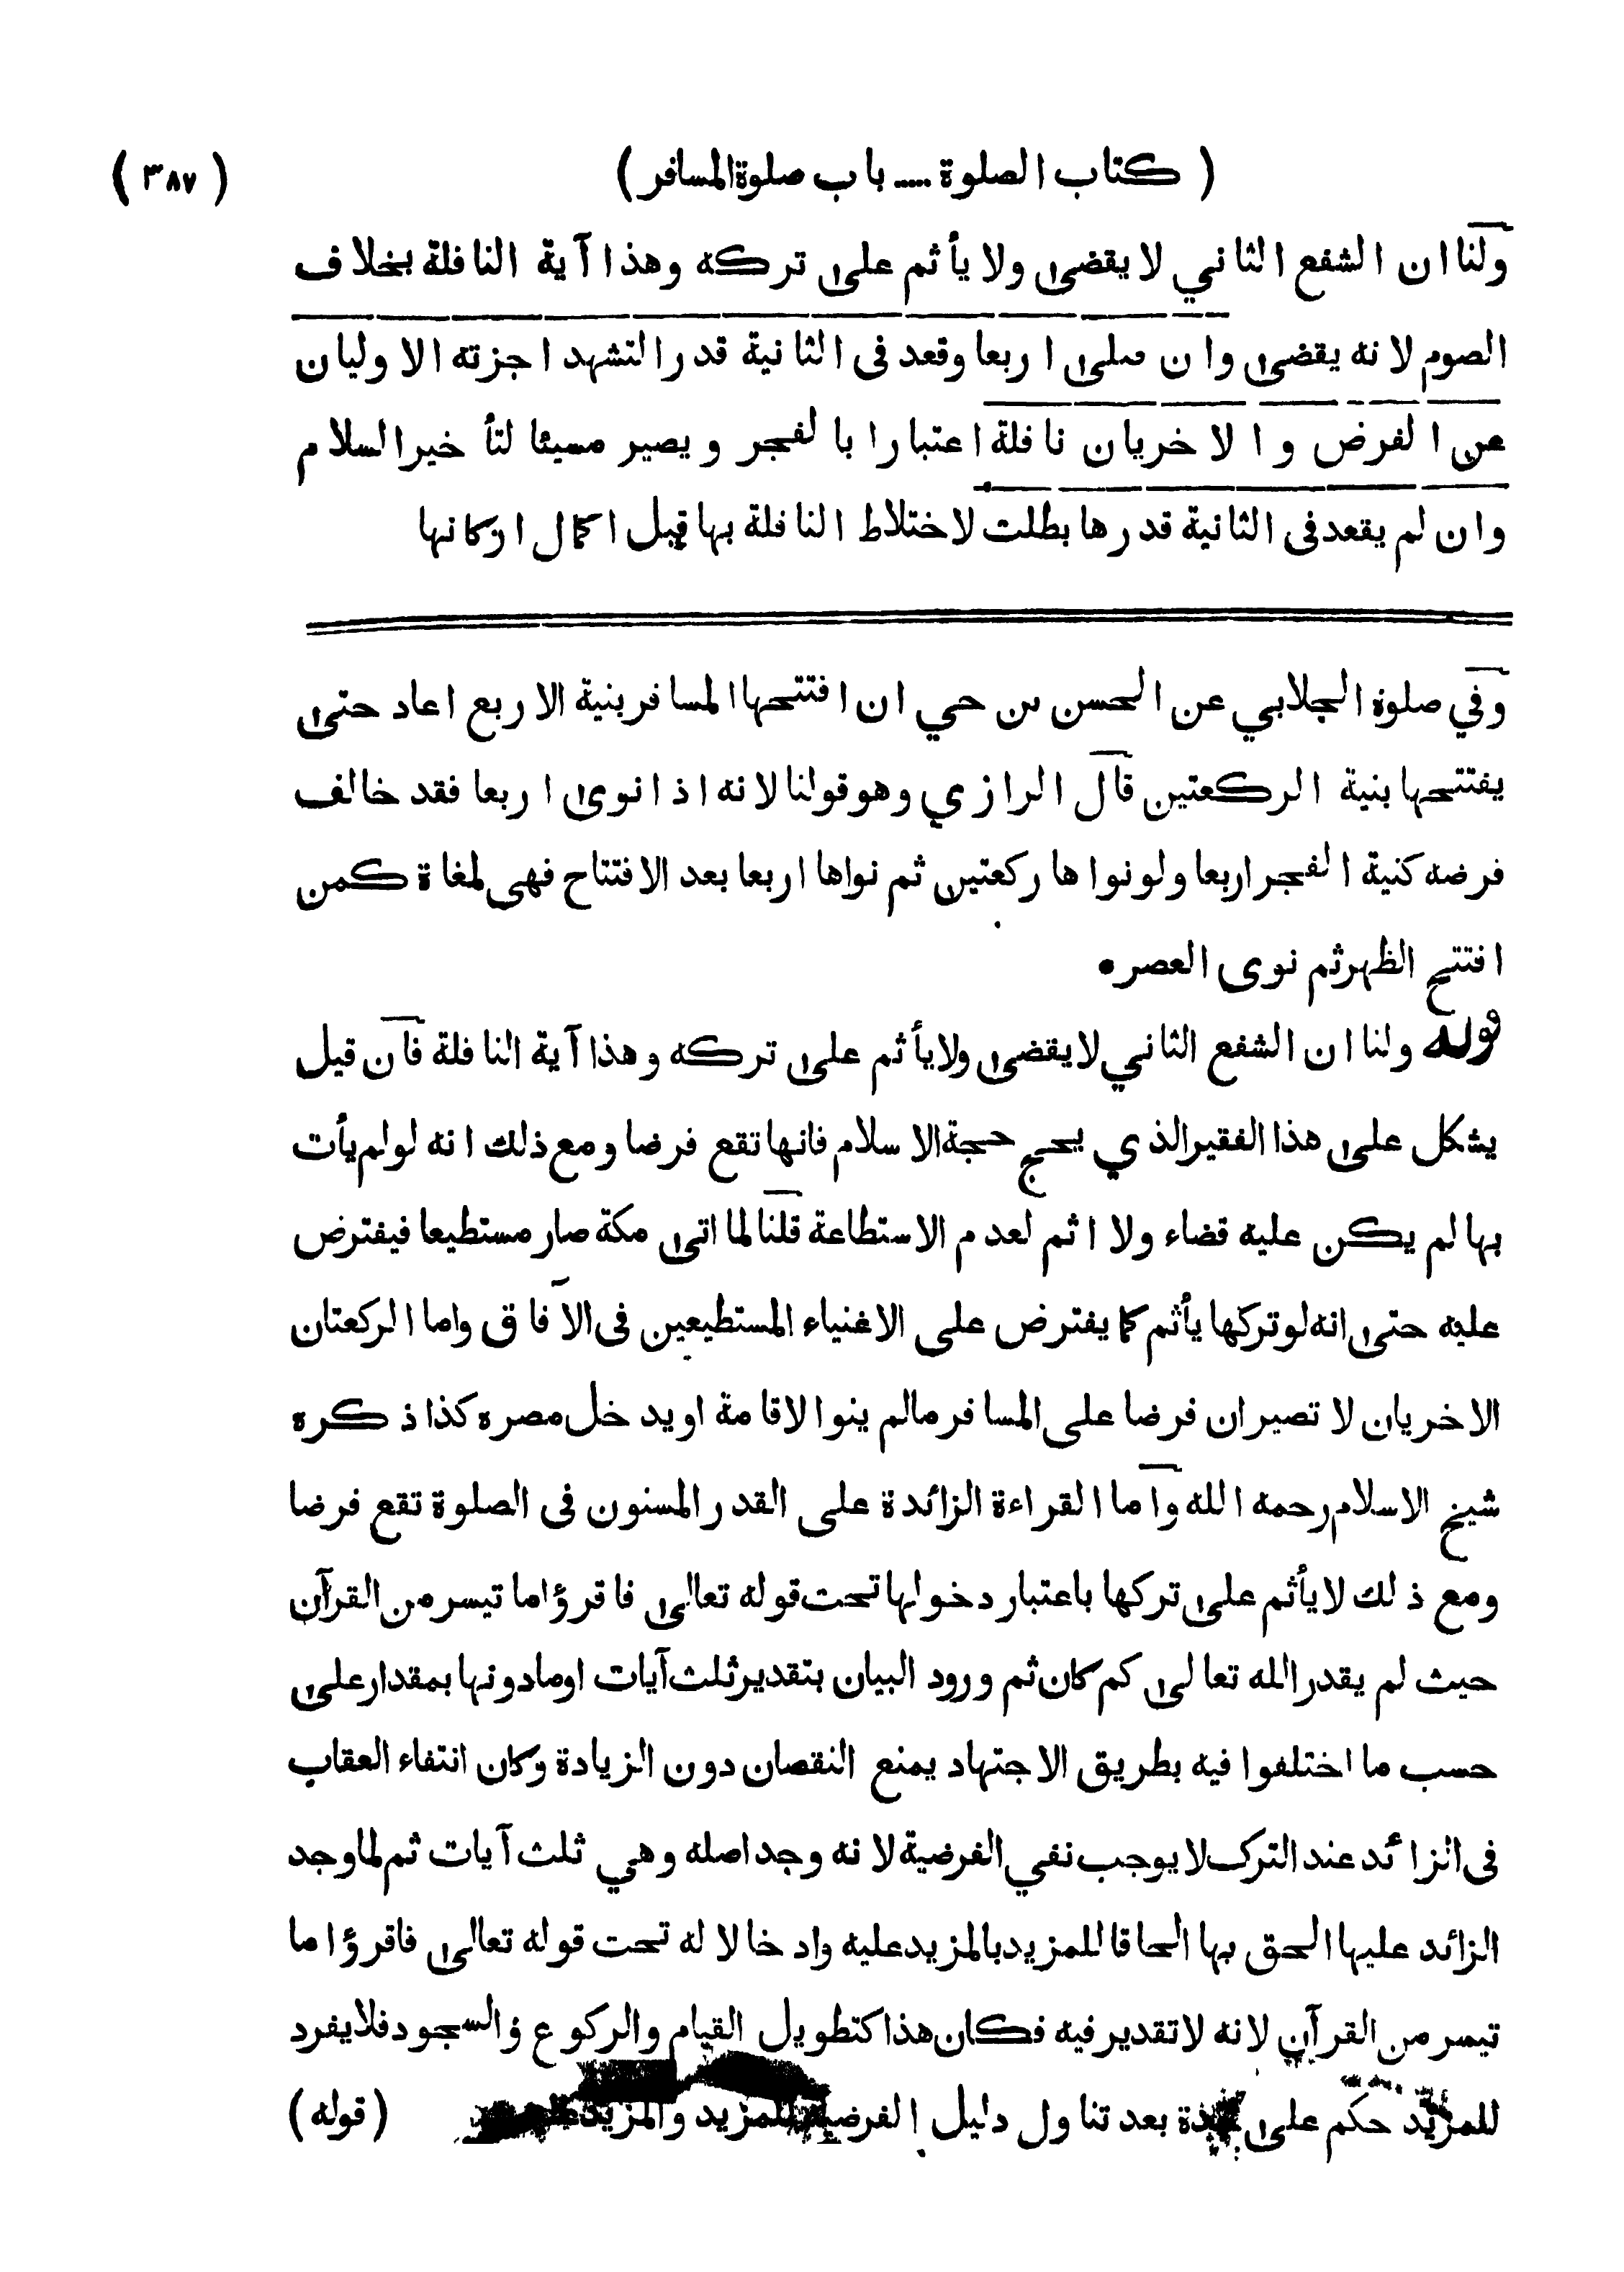 ( كتاب الصلوة ..... باب صلوة المسافر ) ( ٣٨٧ )
ولنا ان الشفع الثاني لا يقضى ولا يأثم على تركه وهذا آية النافلة بخلاف
الصوم لانه يقضى وان صلى اربعا وقعد فى الثانية قدر التشهد اجزته الاوليان
عن الفرض والاخريان نافلة اعتبارا بالفجر ويصير مسيئا لتأخير السلام
وان لم يقعد فى الثانية قدرها بطلت لاختلاط النافلة بها قبل اكمال اركانها
وفي صلوة الجلابي عن الحسن بن حي ان افتتحها المسافر بنية الاربع اعاد حتى
يفتتحها بنية الركعتين قال الرازي وهو قولنا لانه اذا نوى اربعا فقد خالف
فرضه كنية الفجر اربعا ولو نواها ركعتين ثم نواها اربعا بعد الافتتاح فهى ملغاة كمن
افتتح الظهر ثم نوى العصر •
قوله ولنا ان الشفع الثاني لا يقضى ولا يأثم على تركه وهذا آية النافلة فان قيل
يشكل على هذا الفقير الذي يحج حجة الاسلام فانها تقع فرضا ومع ذلك انه لو لم يأت
بها لم يكن عليه قضاء ولا اثم لعدم الاستطاعة قلنا لما اتى مكة صار مستطيعا فيفترض
عليه حتى انه لو تركها يأثم كما يفترض على الاغنياء المستطيعين فى الآفاق واما الركعتان
الاخريان لا تصيران فرضا على المسافر مالم ينوا لاقامة او يدخل مصره كذا ذكره
شيخ الاسلام رحمه الله واما القراءة الزائدة على القدر المسنون فى الصلوة تقع فرضا
ومع ذلك لا يأثم على تركها باعتبار دخولها تحت قوله تعالى فاقرؤا ما تيسر من القرآن
حيث لم يقدر الله تعالى كم كان ثم ورود البيان بتقدير ثلث آيات او ما دونها بمقدار على
حسب ما اختلفوا فيه بطريق الاجتهاد يمنع النقصان دون الزيادة وكان انتفاء العقاب
فى الزائد عند الترك لا يوجب نفي الفرضية لانه وجد اصله وهي ثلث آيات ثم لما وجد
الزائد عليها الحق بها الحاقا للمزيد بالمزيد عليه وادخالا له تحت قوله تعالى فاقرؤا ما
تيسر من القرآن لانه لا تقدير فيه فكان هذا كتطويل القيام والركوع والسجود فلا يفرد
للمزيد حكم على حدة بعد تناول دليل الفرضية للمزيد والمزيد ( قوله )